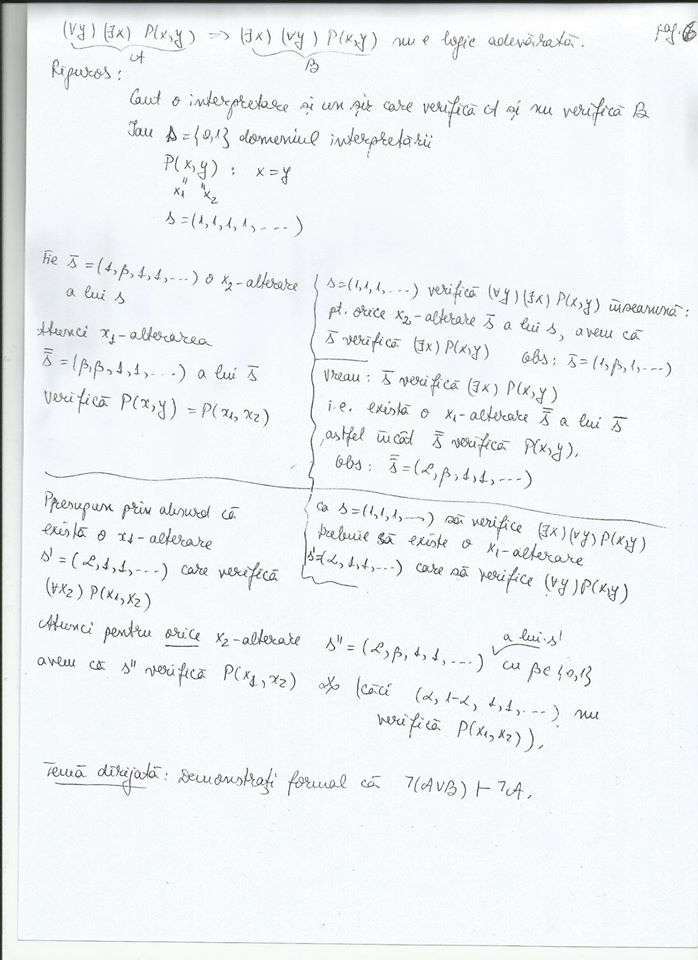 (∀y) (∃x) P(x,y) => (∃x) (∀y) P(x,y) nu e logic adevărată. pag. 6
A B
Riguros:
Caut o interpretare și un șir care verifică A și nu verifică B
Iau D = {0,1} domeniul interpretării
P(x,y) : x = y
x1 x2
s = (1,1,1,1,....)
Fie s̄ = (1,β,1,1,...) o x2-alterare
a lui s
Atunci x1-alterarea
s̿ = (β,β,1,1,...) a lui s̄
verifică P(x,y) = P(x1,x2)
s = (1,1,1,...) verifică (∀y)(∃x) P(x,y) înseamnă:
pt. orice x2-alterare s̄ a lui s, avem că
s̄ verifică (∃x) P(x,y) obs: s̄ = (1,β,1,...)
Vreau: s̄ verifică (∃x) P(x,y)
i.e. există o x1-alterare s̿ a lui s̄
astfel încât s̿ verifică P(x,y).
obs: s̿ = (α,β,1,1,...)
Presupun prin absurd că
există o x1-alterare
s' = (α,1,1,...) care verifică
(∀x2) P(x1,x2)
ca s = (1,1,1,...) să verifice (∃x)(∀y) P(x,y)
trebuie să existe o x1-alterare
s' = (α,1,1,...) care să verifice (∀y) P(x,y)
Atunci pentru orice x2-alterare s'' = (α,β,1,1,...) a lui s' cu β∈{0,1}
avem că s'' verifică P(x1,x2) (căci (α,1-α,1,1,...) nu
verifică P(x1,x2)).
Temă dirijată: Demonstrați formal că ⌐(A∨B) ⊢ ⌐A.